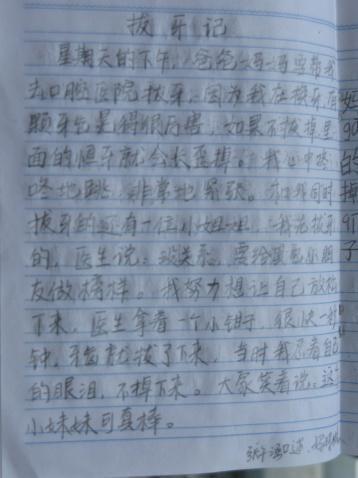 拔牙记
星期天的下午，爸爸妈妈要带我
去口腔医院拔牙。因为我在换牙，有
颗牙齿晃得很厉害，如果不拔掉里
面的恒牙就会长歪掉。我心中咚
咚地跳，非常地紧张。和我同时
拔牙的还有一位小姐姐，我先拔牙
的，医生说：没关系，要给其他小朋
友做榜样。我努力想让自己放松
下来，医生拿着一个小钳子，很快一分
钟，牙齿就拔了下来，当时我忍着自己
的眼泪，不掉下来。大家笑着说：这个
小妹妹可真棒。